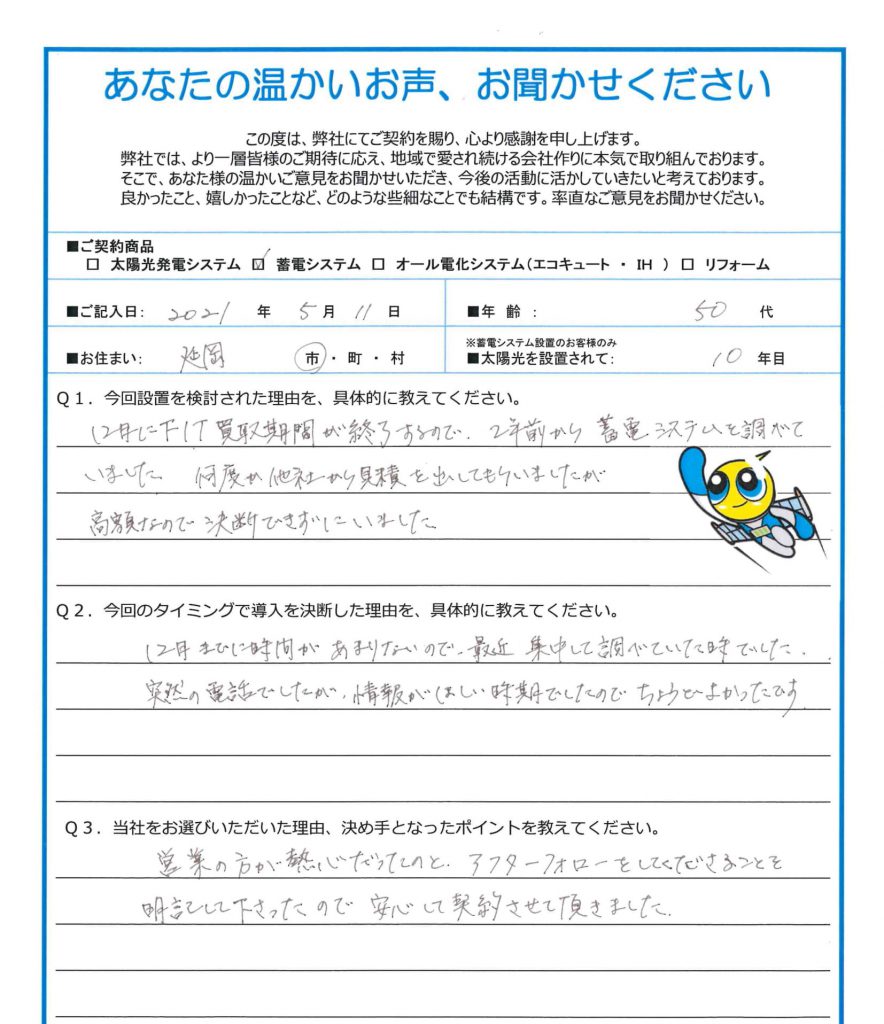 あなたの温かいお声、お聞かせください
この度は、弊社にてご契約を賜り、心より感謝を申し上げます。
弊社では、より一層皆様のご期待に応え、地域で愛され続ける会社作りに本気で取り組んでおります。
そこで、あなた様の温かいご意見をお聞かせいただき、今後の活動に活かしていきたいと考えております。
良かったこと、嬉しかったことなど、どのような些細なことでも結構です。率直なご意見をお聞かせください。
■ご契約商品
□ 太陽光発電システム ☑ 蓄電システム □ オール電化システム(エコキュート ・ IH ) □ リフォーム
■ご記入日: 2021 年 5月 11 日 ■年 齢 : 50 代
※蓄電システム設置のお客様のみ
■お住まい: 延岡 市・町・村 ■太陽光を設置されて: 10 年目
Q1. 今回設置を検討された理由を、具体的に教えてください。
12月にFIT買取期間が終了するので、2年前から蓄電システムを調べて
いました。何度か他社から見積を出してもらいましたが
高額なので決断できずにいました。
Q2. 今回のタイミングで導入を決断した理由を、具体的に教えてください。
12月までに時間があまりないので、最近集中して調べていた時でした。
突然の電話でしたが、情報がほしい時期でしたのでちょうどよかったです。
Q3. 当社をお選びいただいた理由、決め手となったポイントを教えてください。
営業の方が熱心だったのと、アフターフォローをしてくださることを
明記して下さったので安心して契約させて頂きました。